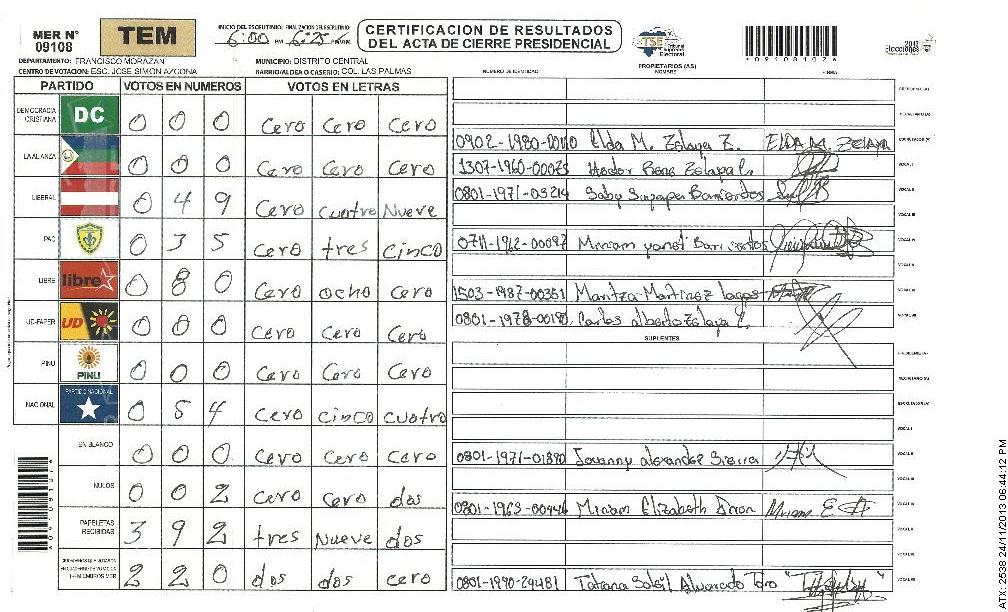 MER N° 09108
TEM
INICIO DEL ESCRUTINIO: FINALIZACION DEL ESCRUTINIO:
6:00 PM 6:25 PM/AM.
CERTIFICACION DE RESULTADOS
DEL ACTA DE CIERRE PRESIDENCIAL
TSE Tribunal Nacional Electoral
2013 Elecciones
*09108107*
DEPARTAMENTO: FRANCISCO MORAZAN MUNICIPIO: DISTRITO CENTRAL
CENTRO DE VOTACION: ESC. JOSE SIMON AZCONA BARRIO/ALDEA O CASERIO: COL. LAS PALMAS
PROPIETARIOS (AS)
NUMERO DE IDENTIDAD NOMBRE FIRMA
PARTIDO VOTOS EN NUMEROS VOTOS EN LETRAS
DEMOCRACIA CRISTIANA DC 0 0 0 Cero Cero Cero
LA ALIANZA 0 0 0 Cero Cero Cero
LIBERAL 0 4 9 Cero cuatro Nueve
PAC 0 3 5 Cero tres cinco
LIBRE libre 0 8 0 Cero ocho Cero
UD-FAPER UD 0 0 0 Cero Cero Cero
PINU PINU 0 0 0 Cero Cero Cero
NACIONAL PARTIDO NACIONAL 0 5 4 Cero cinco cuatro
EN BLANCO 0 0 0 Cero Cero Cero
NULOS 0 0 2 Cero Cero dos
PAPELETAS RECIBIDAS 3 9 2 tres Nueve dos
2 2 0 dos dos cero
PRESIDENTE (A)
SECRETARIO (A)
0902-1980-00110 Elda M. Zelaya Z. ELDA M. ZELAYA ESCRUTADOR (A)
1307-1960-00075 Hector Rene Zelaya VOCAL I
0801-1971-03214 Barrientos VOCAL II
VOCAL III
0711-1962-00097 Miriam Yanet Barrientos VOCAL IV
VOCAL V
1503-1987-00351 Maritza Martinez Lagos VOCAL VI
0801-1978-00190 Carlos alberto Zelaya Z. VOCAL VII
SUPLENTES
PRESIDENTE (A)
SECRETARIO (A)
ESCRUTADOR (A)
VOCAL I
0801-1971-01890 Jovanny alexander Sierra VOCAL II
VOCAL III
Miriam Elizabeth Miriam E
VOCAL V
VOCAL VI
0801-1990-24481 Tatiana Alvarado Toro VOCAL VII
*09108107*
ATX-2538 24/11/2013 06:44:12 PM